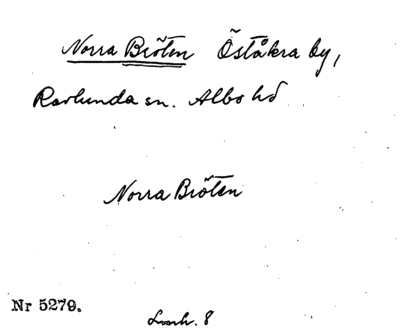 Norra Bröten Öståkra by,
Ravlunda sn. Albo hd
Norra Bröten
Nr 5279.
8